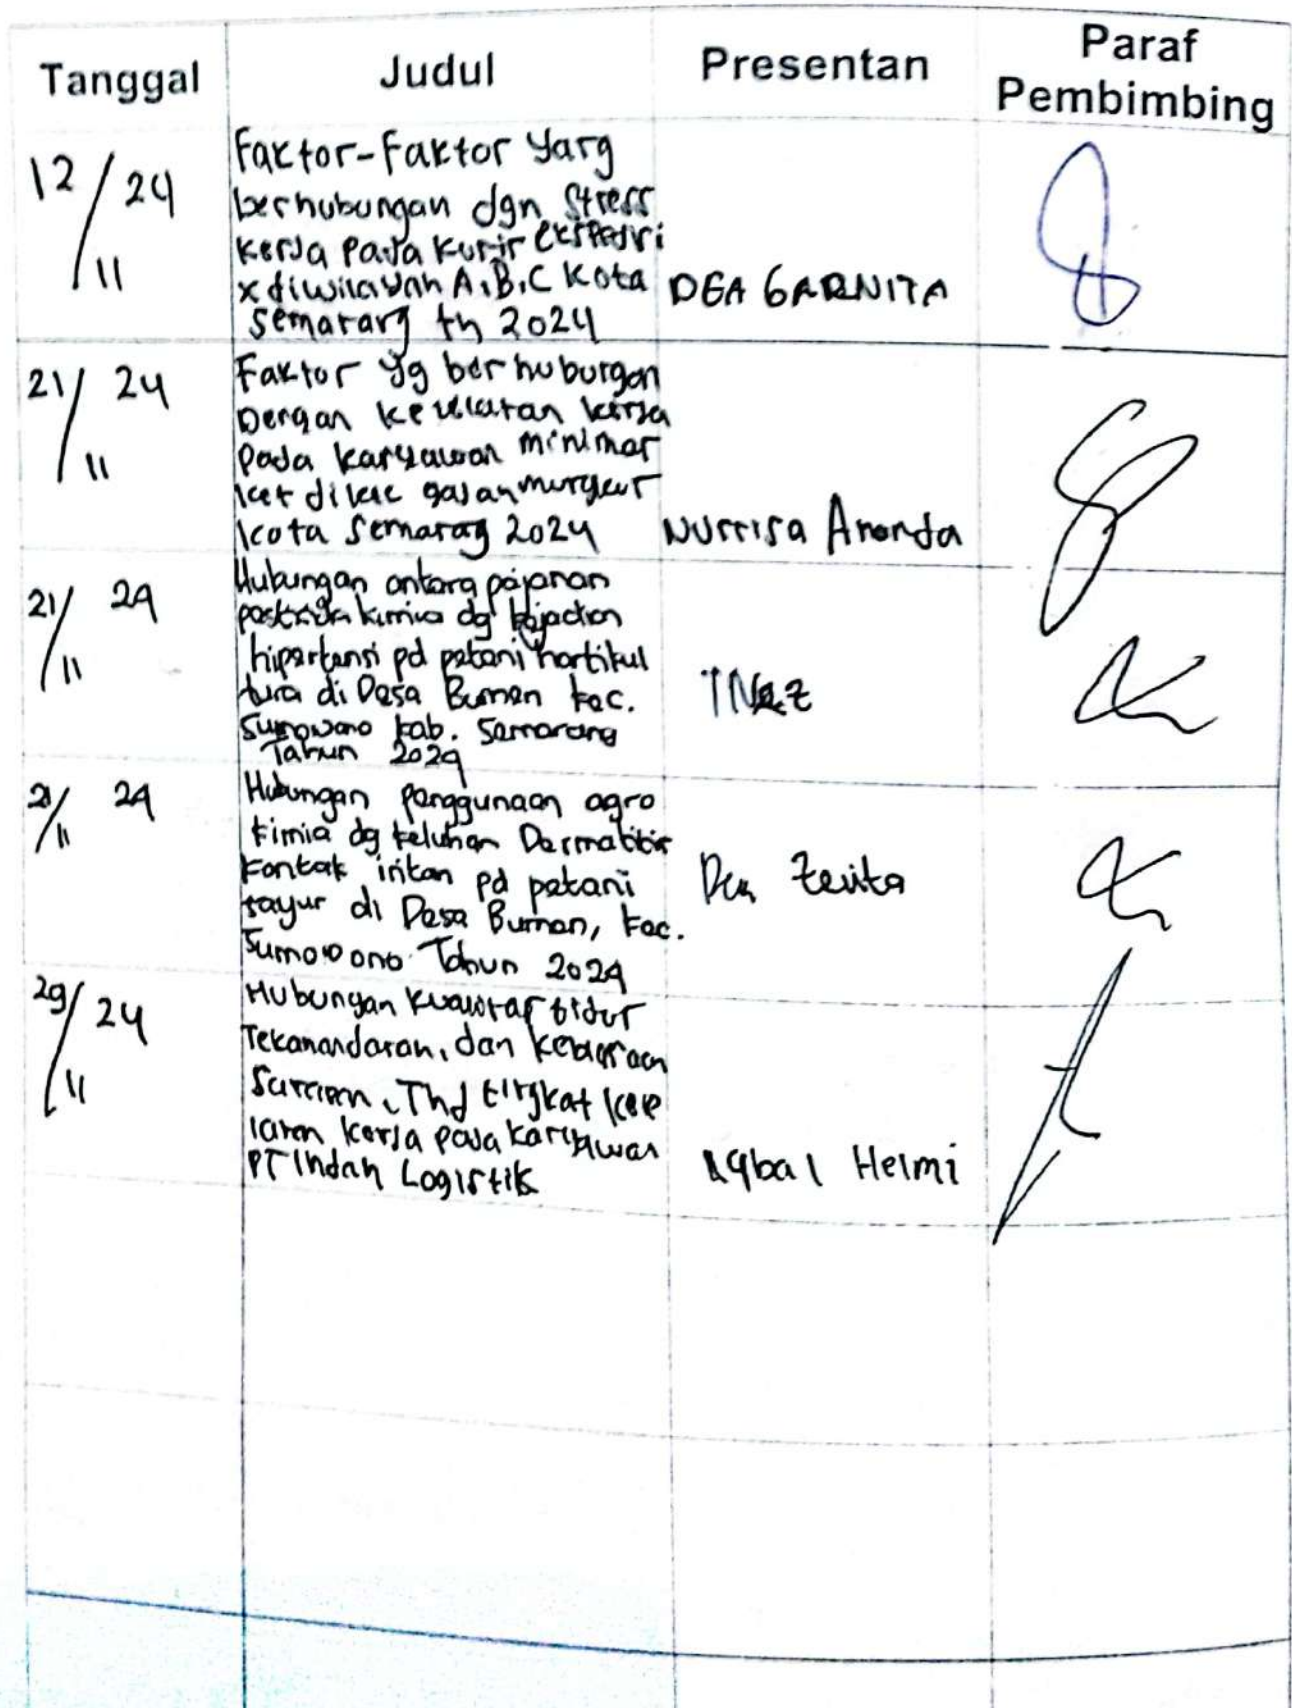 Tanggal
Judul
Presentan
Paraf
Pembimbing
12/24
11
Faktor-Faktor Yang
berhubungan dgn Stress
Kerja pada kurir ekspedisi
x diwilayah A,B,C Kota
Semarang th 2024
DEA GARNITA
21/24
11
Faktor yg berhubungan
Dengan kerja
Pada karyawan minimar
ket dikec gajahmungkur
kota Semarag 2024
Nurrisa Ananda
21/24
11
Hubungan antara pajanan
pestisida kimia dg kejadian
hipertensi pd petani hortikul
tura di Desa Bumen kec.
Sumowono kab. Semarang
Tahun 2024
INEZ
21/24
11
Hubungan penggunaan agro
kimia dg keluhan Dermatitis
Kontak iritan pd petani
sayur di Desa Bumen, kec.
Sumowono Tahun 2024
Dea
29/24
11
Hubungan kualitas tidur
Tekanandaran, dan
Thd tingkat kele
lahan kerja pada karyawan
PT Indah Logistik
Iqbal Helmi